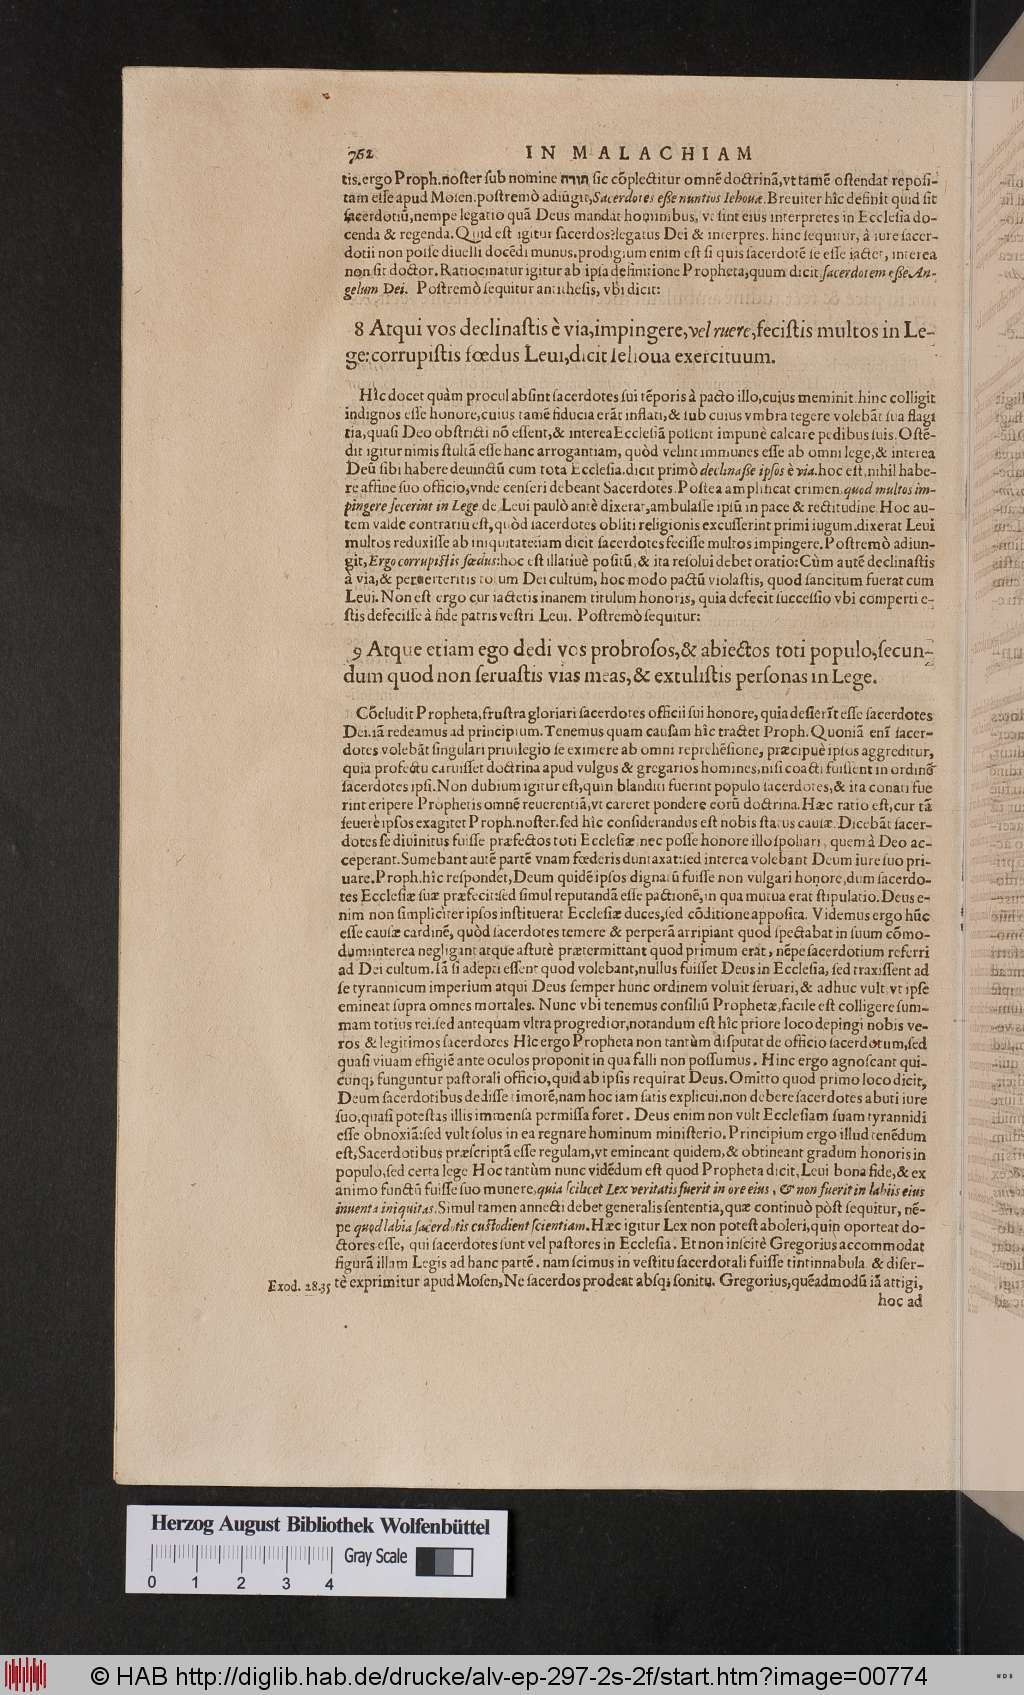 762 IN MALACHIAM
tis. ergo Proph. noster sub nomine תורה sic cõplectitur omnẽ doctrinã, vt tamẽ ostendat reposi-
tam esse apud Mosen. postremò adiũgit, Sacerdotes esse nuntios Iehouæ. Breuiter hîc definit quid sit
sacerdotiũ, nempe legatio quã Deus mandat hominibus, vt sint eius interpretes in Ecclesia do-
cenda & regenda. Quid est igitur sacerdos? legatus Dei & interpres. hinc sequitur, à iure sacer-
dotii non posse diuelli docẽdi munus. prodigium enim est si quis sacerdotẽ se esse iactet, interea
non sit doctor. Ratiocinatur igitur ab ipsa definitione Propheta, quum dicit sacerdotem esse An-
gelum Dei. Postremò sequitur antithesis, vbi dicit:
8 Atqui vos declinastis è via, impingere, vel ruere, fecistis multos in Le-
ge: corrupistis fœdus Leui, dicit Iehoua exercituum.
Hîc docet quàm procul absint sacerdotes sui tẽporis à pacto illo, cuius meminit. hinc colligit
indignos esse honore, cuius tamẽ fiducia erãt inflati, & sub cuius vmbra tegere volebãt sua flagi
tia, quasi Deo obstricti nõ essent, & interea Ecclesiã possent impunè calcare pedibus suis. Ostẽ-
dit igitur nimis stultã esse hanc arrogantiam, quòd velint immunes esse ab omni lege, & interea
Deũ sibi habere deuinctũ cum tota Ecclesia. dicit primò declinasse ipsos è via. hoc est, nihil habe-
re affine suo officio, vnde censeri debeant Sacerdotes. Postea amplificat crimen. quod multos im-
pingere fecerint in Lege. de Leui paulò antè dixerat, ambulasse ipsũ in pace & rectitudine. Hoc au-
tem valde contrariũ est, quòd sacerdotes obliti religionis excusserint primi iugum. dixerat Leui
multos reduxisse ab iniquitate: iam dicit sacerdotes fecisse multos impingere. Postremò adiun-
git, Ergo corrupistis fœdus: hoc est illatiuè positũ, & ita resolui debet oratio: Cùm autẽ declinastis
à via, & peruerteritis totum Dei cultum, hoc modo pactũ violastis, quod sancitum fuerat cum
Leui. Non est ergo cur iactetis inanem titulum honoris, quia defecit successio vbi comperti e-
stis defecisse à fide patris vestri Leui. Postremò sequitur:
9 Atque etiam ego dedi vos probrosos, & abiectos toti populo, secun-
dum quod non seruastis vias meas, & extulistis personas in Lege.
Cõcludit Propheta, frustra gloriari sacerdotes officii sui honore, quia desierĩt esse sacerdotes
Dei. iã redeamus ad principium. Tenemus quam causam hîc tractet Proph. Quoniã enĩ sacer-
dotes volebãt singulari priuilegio se eximere ab omni reprehẽsione, præcipuè ipsos aggreditur,
quia profectu caruisset doctrina apud vulgus & gregarios homines, nisi coacti fuissent in ordinẽ
sacerdotes ipsi. Non dubium igitur est, quin blanditi fuerint populo sacerdotes, & ita conati fue
rint eripere Prophetis omnẽ reuerentiã, vt careret pondere eorũ doctrina. Hæc ratio est, cur tã
seuerè ipsos exagitet Proph. noster. sed hîc considerandus est nobis status causæ. Dicebãt sacer-
dotes se diuinitus fuisse præfectos toti Ecclesiæ, nec posse honore illo spoliari, quem à Deo ac-
ceperant. Sumebant autẽ partẽ vnam fœderis duntaxat: sed interea volebant Deum iure suo pri-
uare. Proph. hîc respondet, Deum quidẽ ipsos dignatũ fuisse non vulgari honore, dum sacerdo-
tes Ecclesiæ suæ præfecit: sed simul reputandã esse pactionẽ, in qua mutua erat stipulatio. Deus e-
nim non simpliciter ipsos instituerat Ecclesiæ duces, sed cõditione apposita. Videmus ergo hũc
esse causæ cardinẽ, quòd sacerdotes temere & perperã arripiant quod spectabat in suum cõmo-
dum: interea negligant atque astutè prætermittant quod primum erat, nẽpe sacerdotium referri
ad Dei cultum. Iã si adepti essent quod volebant, nullus fuisset Deus in Ecclesia, sed traxissent ad
se tyrannicum imperium atqui Deus semper hunc ordinem voluit seruari, & adhuc vult vt ipse
emineat supra omnes mortales. Nunc vbi tenemus consiliũ Prophetæ, facile est colligere sum-
mam totius rei. sed antequam vltra progredior, notandum est hîc priore loco depingi nobis ve-
ros & legitimos sacerdotes Hîc ergo Propheta non tantùm disputat de officio sacerdotum, sed
quasi viuam effigiẽ ante oculos proponit in qua falli non possumus. Hinc ergo agnoscant qui-
cunq; funguntur pastorali officio, quid ab ipsis requirat Deus. Omitto quod primo loco dicit,
Deum sacerdotibus dedisse timorẽ, nam hoc iam satis explicui. non debere sacerdotes abuti iure
suo, quasi potestas illis immensa permissa foret. Deus enim non vult Ecclesiam suam tyrannidi
esse obnoxiã: sed vult solus in ea regnare hominum ministerio. Principium ergo illud tenẽdum
est, Sacerdotibus præscriptã esse regulam, vt emineant quidem, & obtineant gradum honoris in
populo, sed certa lege Hoc tantùm nunc vidẽdum est quod Propheta dicit, Leui bona fide, & ex
animo functũ fuisse suo munere, quia scilicet Lex veritatis fuerit in ore eius, & non fuerit in labiis eius
inuenta iniquitas. Simul tamen annecti debet generalis sententia, quæ continuò pòst sequitur, nẽ-
pe quod labia sacerdotis custodient scientiam. Hæc igitur Lex non potest aboleri, quin oporteat do-
ctores esse, qui sacerdotes sunt vel pastores in Ecclesia. Et non inscitè Gregorius accommodat
figurã illam Legis ad hanc partẽ. nam scimus in vestitu sacerdotali fuisse tintinnabula & diser-
Exod. 28.35 tè exprimitur apud Mosen, Ne sacerdos prodeat absq; sonitu. Gregorius, quẽadmodũ iã attigi,
hoc ad
Herzog August Bibliothek Wolfenbüttel
Gray Scale
0 1 2 3 4
© HAB http://diglib.hab.de/drucke/alv-ep-297-2s-2f/start.htm?image=00774
WDB